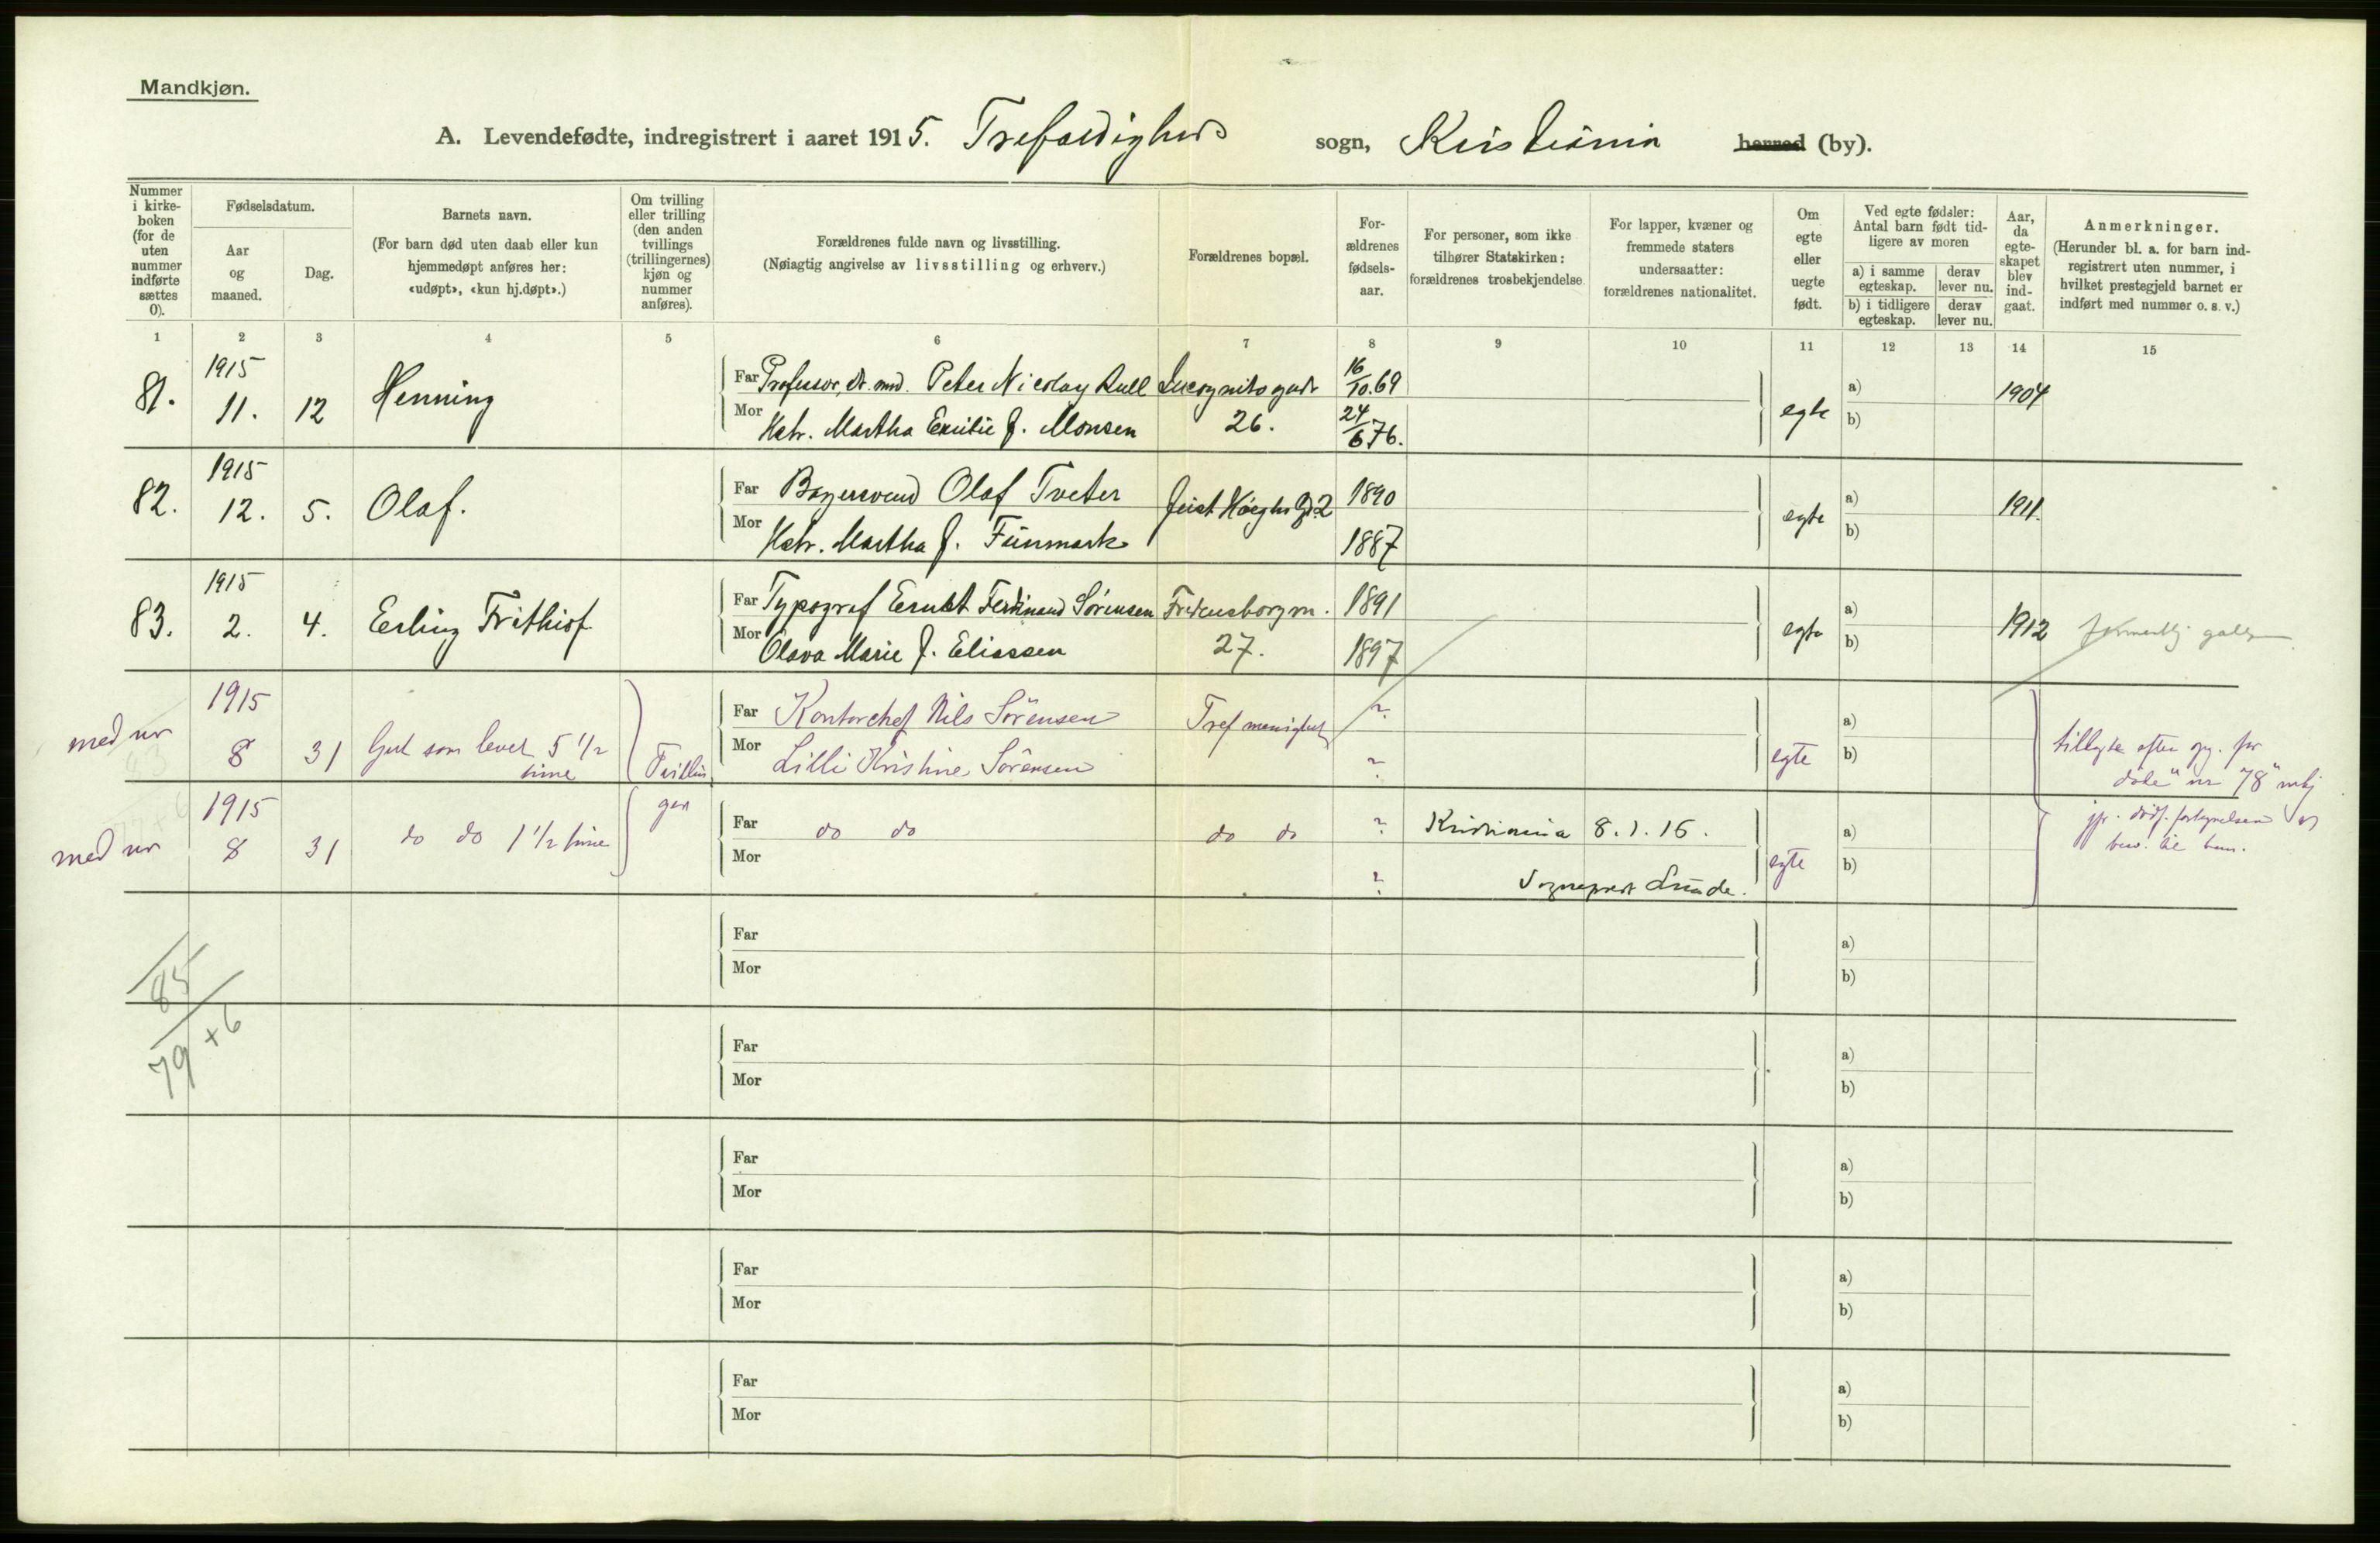 Mandkjøn.
A. Levendefødte, indregistrert i aaret 1915. Trefoldigheds sogn, Kristiania herred (by).
Nummer i kirke-boken (for de uten nummer indførte sættes 0).
Fødselsdatum.
Aar og maaned.
Dag.
Barnets navn.
(For barn død uten daab eller kun hjemmedøpt anføres her: «udøpt», «kun hj.døpt».)
Om tvilling eller trilling (den anden tvillings (trillingernes) kjøn og nummer anføres).
Forældrenes fulde navn og livsstilling.
(Nøiagtig angivelse av livsstilling og erhverv.)
Forældrenes bopæl.
For-ældrenes fødsels-aar.
For personer, som ikke tilhører Statskirken: forældrenes trosbekjendelse
For lapper, kvæner og fremmede staters undersaatter: forældrenes nationalitet.
Om egte eller uegte født.
Ved egte fødsler: Antal barn født tid-ligere av moren
a) i samme egteskap.
derav lever nu.
b) i tidligere egteskap.
derav lever nu.
Aar, da egte-skapet blev ind-gaat.
Anmerkninger.
(Herunder bl. a. for barn ind-registrert uten nummer, i hvilket prestegjeld barnet er indført med nummer o. s. v.)
1 2 3 4 5 6 7 8 9 10 11 12 13 14 15
81. 1915 11. 12 Henning
Far Professor, dr. med. Peter Nicolay Rull Incognitogadt 16/10.69
Mor Hstr. Martha Emilie f. Monsen 26. 24/6 76.
egte a) b) 1904
82. 1915 12. 5. Olaf.
Far Bagersvend Olaf Tveter Geist Høeghs Gd 2 1890
Mor Hstr. Martha f. Finmark 1887
egte a) b) 1911.
83. 1915 2. 4. Erling Frithiof
Far Typograf Ernst Ferdinand Sörensen Fredensborgv. 1891
Mor Olava Marie f. Eliassen 27. 1897
egte a) b) 1912
med nr 1915 8 31 Gut som levet 5 1/2 time Tvillin
Far Kontorchef Nils Sörensen Tref menighet ?
Mor Lilli Kristine Sörensen ?
egte a) b)
tillagte efter opg. for
døde" nr 78" mkj
med nr 1915 8 31 do do 1 1/2 time ger
Far do do do do ? Kristiania 8.1.16.
Mor ? Sogneprest Lunde.
egte a) b)
85
79 + 6
Far
Mor
a)
b)
Far
Mor
a)
b)
Far
Mor
a)
b)
Far
Mor
a)
b)
Far
Mor
a)
b)